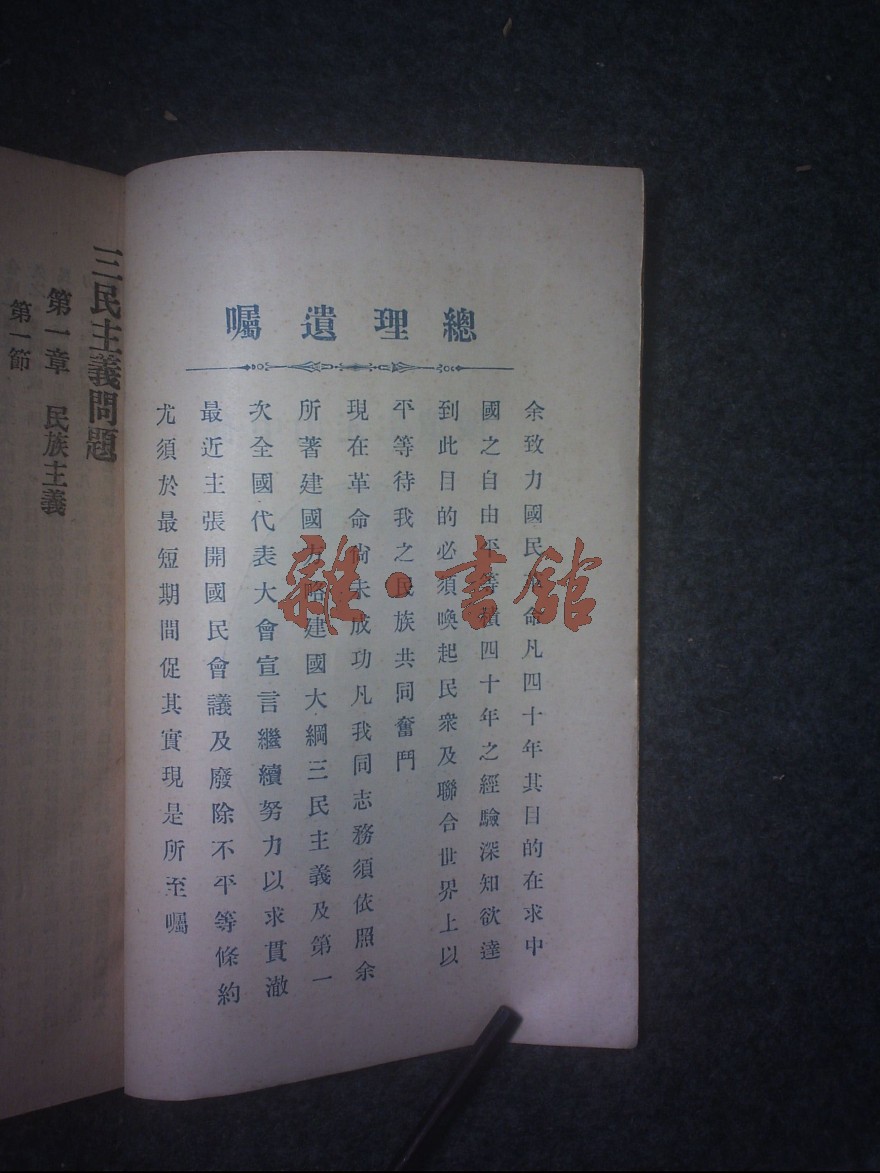 總理遺囑
余致力國民革命凡四十年其目的在求中
國之自由平等積四十年之經驗深知欲達
到此目的必須喚起民衆及聯合世界上以
平等待我之民族共同奮鬥
現在革命尚未成功凡我同志務須依照余
所著建國方略建國大綱三民主義及第一
次全國代表大會宣言繼續努力以求貫澈
最近主張開國民會議及廢除不平等條約
尤須於最短期間促其實現是所至囑
三民主義問題
第一章 民族主義
第一節
雜·書館